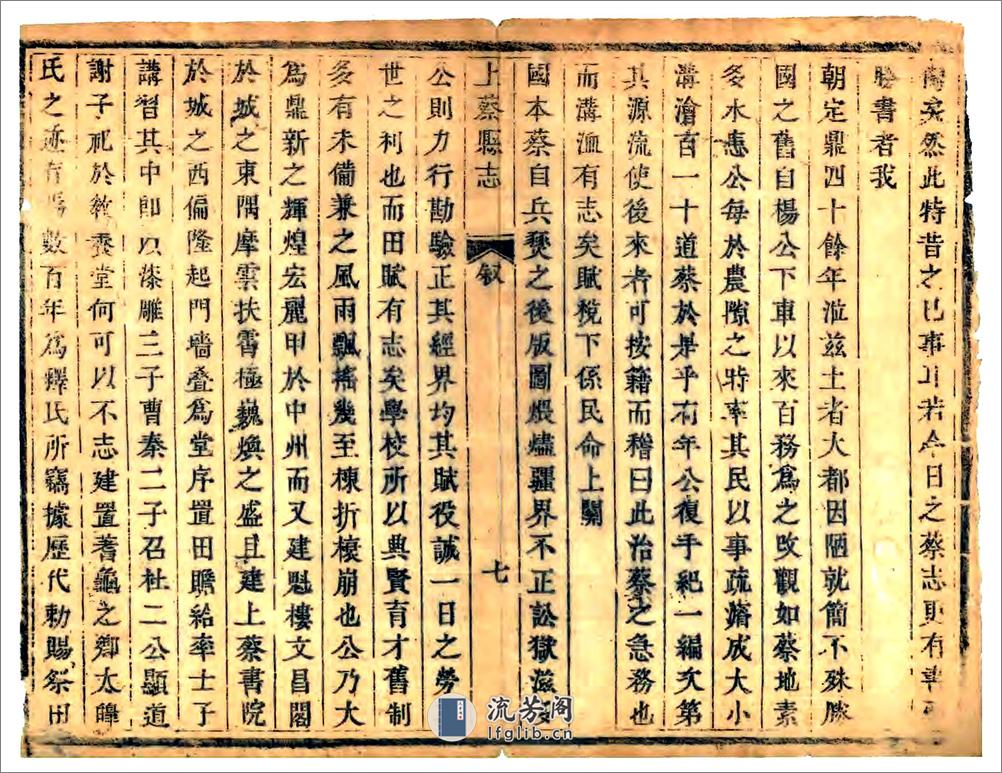 矣然此特昔之已事耳若今日之蔡志更有
勝書者我
朝定鼎四十餘年涖茲土者大都因陋就簡不殊勝
國之舊自楊公下車以來百務爲之改觀如蔡地素
多水患公每於農隙之時率其民以事疏濬成大小
溝澮百一十道蔡於是乎有年公復手紀一編次第
其源流使後來者可按籍而稽曰此治蔡之急務也
而溝洫有志矣賦稅下係民命上關
國本蔡自兵燹之後版圖煨燼疆界不正訟獄滋
上蔡縣志
敘
七
公則力行勘驗正其經界均其賦役誠一日之勞
世之利也而田賦有志矣學校所以典賢育才舊制
多有未備兼之風雨飄搖幾至棟折榱崩也公乃大
爲鼎新之輝煌宏麗甲於中州而又建魁樓文昌閣
於城之東隅摩雲扶霄極巍煥之盛且建上蔡書院
於城之西偏隆起門墻叠爲堂序置田贍給率士子
講習其中卽以漆雕三子曹秦二子召杜二公顯道
謝子祀於敎養堂何可以不志建置蓍龜之鄉太皥
氏之迹存焉數百年爲釋氏所竊據歷代勅賜祭田
流芳阁
lfglib.cn